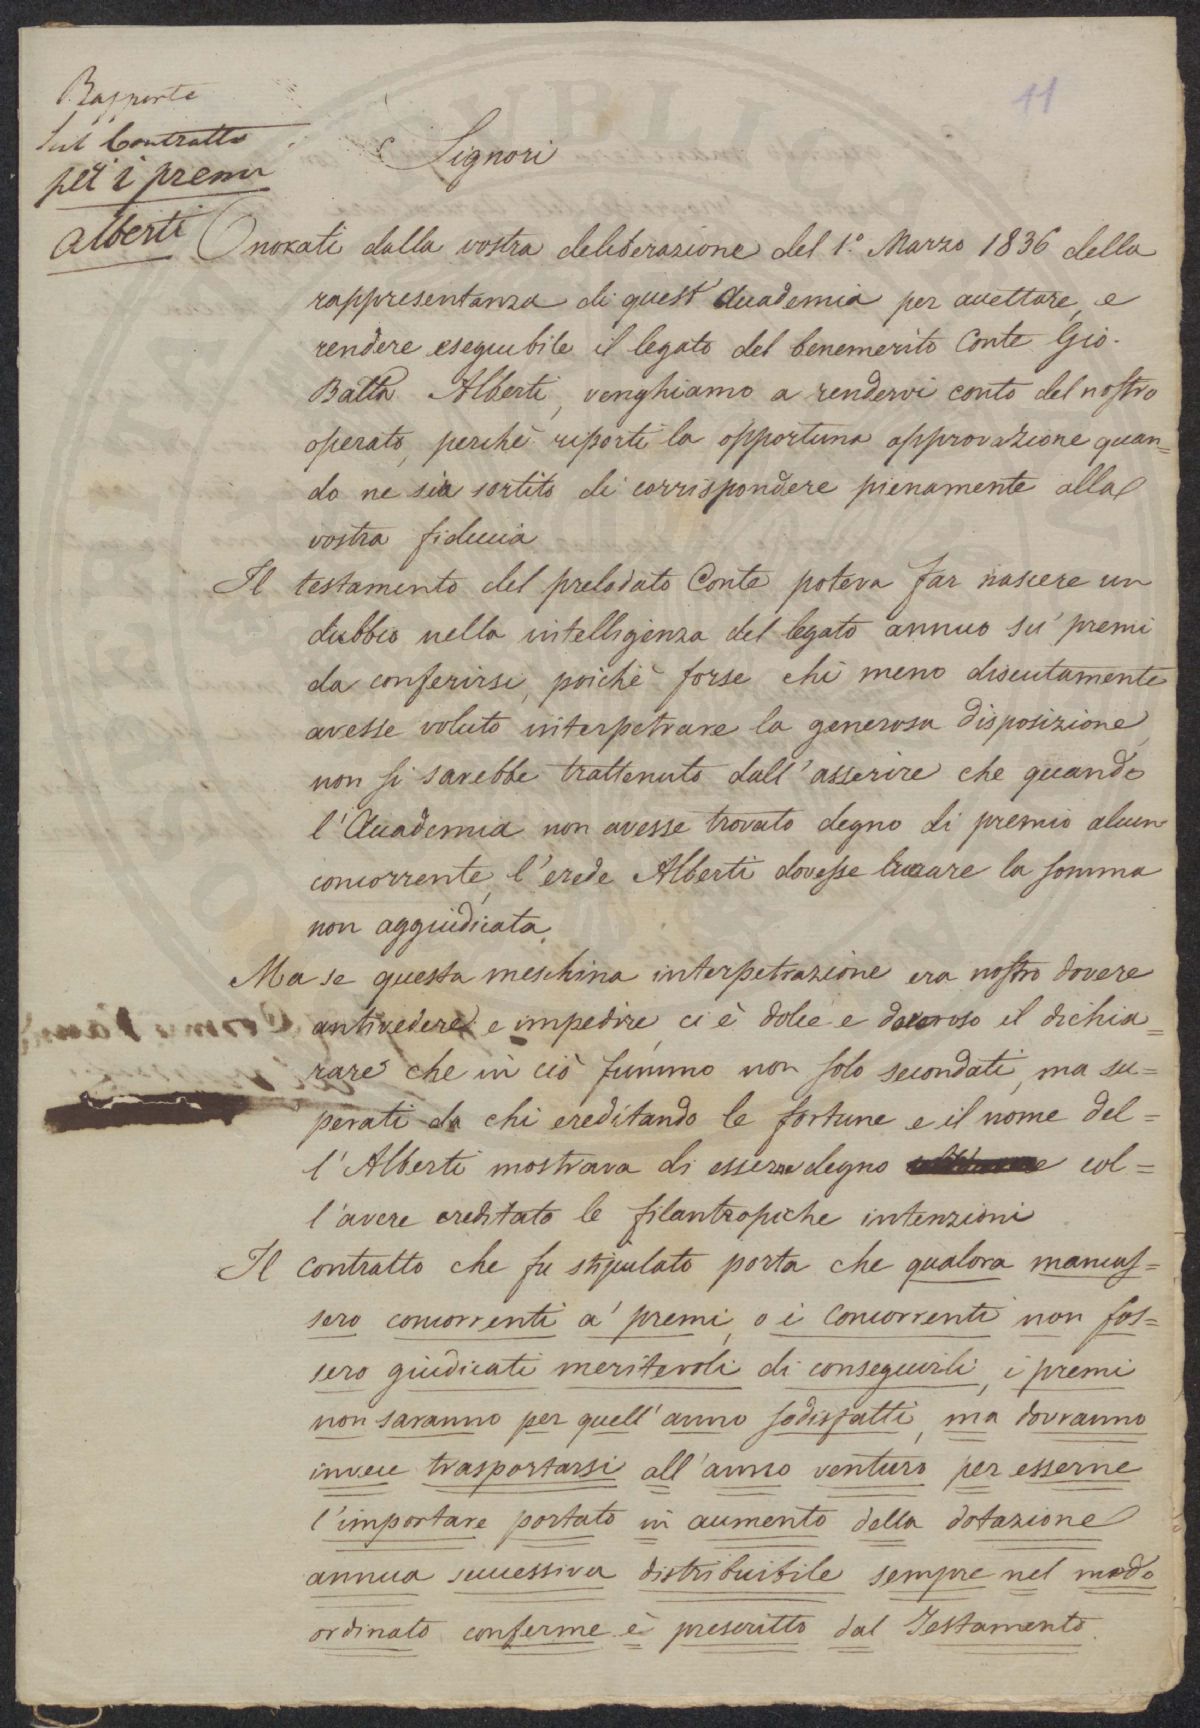 11
Rapporto
Sul Contratto
per i premi
Alberti
Signori
Onorati dalla vostra deliberazione del 1.° Marzo 1836 della
rappresentanza di quest' Accademia per accettare, e
rendere eseguibile il legato del benemerito Conte Gio.
Batta Alberti, venghiamo a rendervi conto del nostro
operato, perchè riporti la opportuna approvazione quan=
do ne sia sortito di corrispondere pienamente alla
vostra fiducia
Il testamento del prelodato Conte poteva far nascere un
dubbio nella intelligenza del legato annuo su' premi
da conferirsi, poichè forse chi meno discutamente
avesse voluto interpetrare la generosa disposizione,
non si sarebbe trattenuto dall' asserire che quando
l' Accademia non avesse trovato degno di premio alcun
concorrente, l' erede Alberti dovesse lucrare la somma
non aggiudicata.
Ma se questa meschina interpetrazione era nostro dovere
antivedere e impedire, ci è dolce e doveroso il dichia=
rare che in ciò fummo non solo secondati, ma su=
perati da chi ereditando le fortune e il nome del=
l' Alberti mostrava di esserne degno col=
l' avere ereditato le filantropiche intenzioni
Il contratto che fu stipulato porta che qualora mancas=
sero concorrenti a' premi, o i Concorrenti non fos=
sero giudicati meritevoli di conseguirli, i premi
non saranno per quell' anno sodisfatti, ma dovranno
invece trasportarsi all' anno venturo per esserne
l' importare portato in aumento della dotazione
annua successiva distribuibile sempre nel modo
ordinato conforme è prescritto dal Testamento.